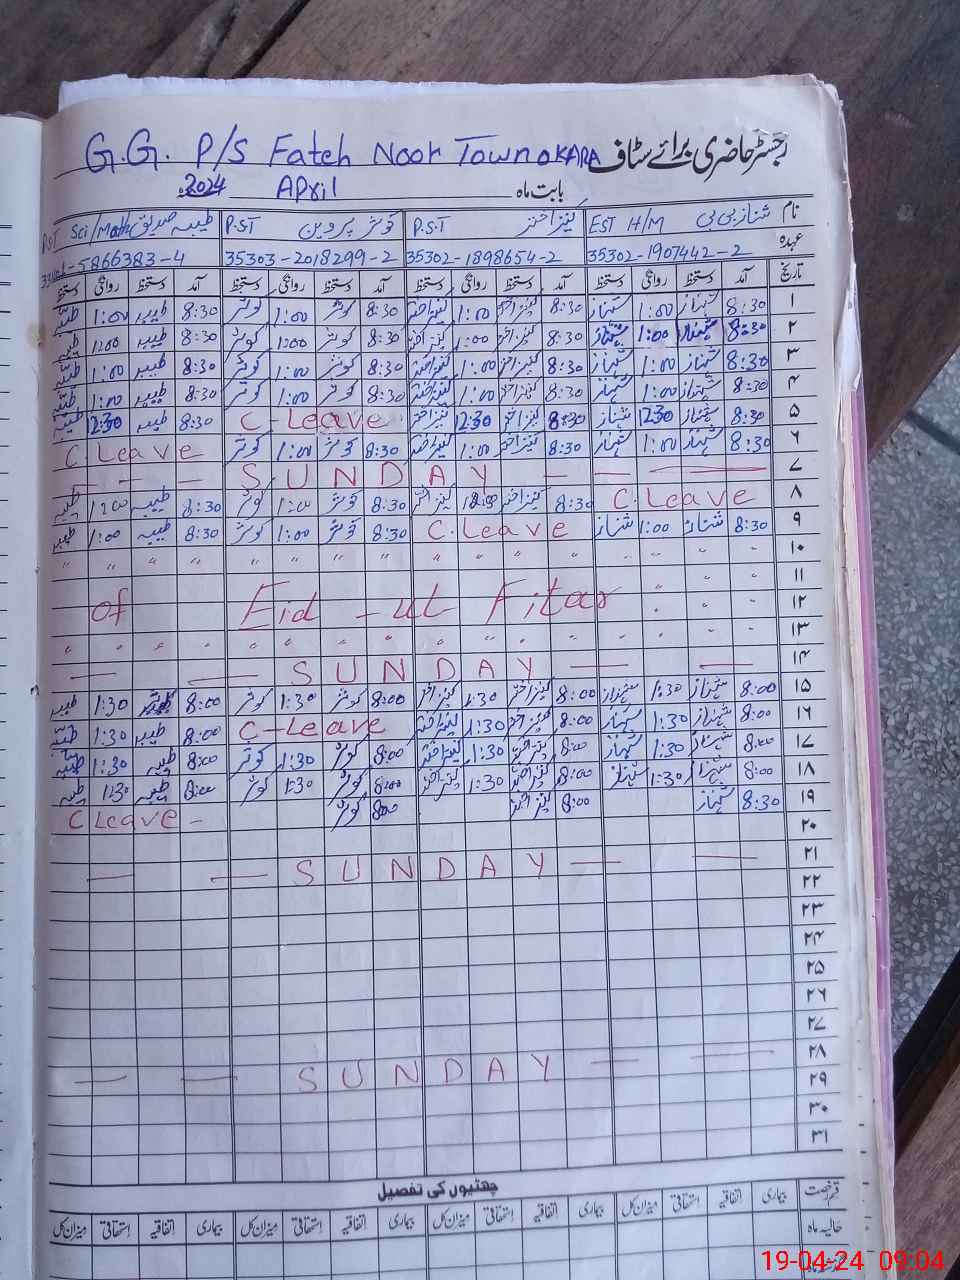 رجسٹر حاضری برائے سٹاف G.G. P/S Fateh Noor Town OKARA
بابت ماہ April 2024ء
نام شناز بی بی EST H/M کنیز اختر P.S.T کوثر پروین P.S.T طیبہ صدیق PST Sci/Math
عہدہ 35302-1907442-2 35302-1898654-2 35303-2018299-2 5866383-4
تاریخ آمد دستخط روانگی دستخط آمد دستخط روانگی دستخط آمد دستخط روانگی دستخط آمد دستخط روانگی دستخط
۱ 8:30 شہناز 1:00 شہناز 8:30 کنیز اختر 1:00 کنیز اختر 8:30 کوثر 1:00 کوثر 8:30 طیبہ 1:00 طیبہ
۲ 8:30 شہناز 1:00 شہناز 8:30 کنیز اختر 1:00 کنیز اختر 8:30 کوثر 1:00 کوثر 8:30 طیبہ 1:00 طیبہ
۳ 8:30 شہناز 1:00 شہناز 8:30 کنیز اختر 1:00 کنیز اختر 8:30 کوثر 1:00 کوثر 8:30 طیبہ 1:00 طیبہ
۴ 8:30 شہناز 1:00 شہناز 8:30 کنیز اختر 1:00 کنیز اختر 8:30 کوثر 1:00 کوثر 8:30 طیبہ 1:00 طیبہ
۵ 8:30 شہناز 12:30 شناز 8:30 کنیز اختر 12:30 کنیز اختر C-Leave 8:30 طیبہ 12:30 طیبہ
۶ 8:30 شہناز 1:00 شہناز 8:30 کنیز اختر 1:00 کنیز اختر 8:30 کوثر 1:00 کوثر C Leave
۷ — — — SUNDAY — — —
۸ C.Leave 8:30 کنیز اختر کنیز اختر 8:30 کوثر 1:00 کوثر 8:30 طیبہ 1:00 طیبہ
۹ 8:30 شناز 1:00 شناز C.Leave 8:30 کوثر 1:00 کوثر 8:30 طیبہ 1:00 طیبہ
۱۰ " " " " " " " " " " " " " " " "
۱۱ " " " "
۱۲ of Eid -ul Fitar " " " "
۱۳ " " " " " " " " " " " " " " " "
۱۴ — — SUNDAY — —
۱۵ 8:00 شہناز 1:30 شہناز 8:00 کنیز اختر 1:30 کنیز اختر 8:00 کوثر 1:30 کوثر 8:00 1:30 طیبہ
۱۶ 8:00 شہناز 1:30 شہناز 8:00 کنیز اختر 1:30 کنیز اختر C-Leave 8:00 طیبہ 1:30 طیبہ
۱۷ 8:00 شہناز 1:30 شہناز 8:00 کنیز اختر 1:30 کنیز اختر 8:00 کوثر 1:30 کوثر 8:00 طیبہ 1:30 طیبہ
۱۸ 8:00 شہناز 1:30 شہناز 8:00 کنیز اختر 1:30 کنیز اختر 8:00 کوثر 1:30 کوثر 8:00 طیبہ 1:30 طیبہ
۱۹ 8:30 شہناز 8:00 کنیز اختر 8:00 کوثر C Leave -
۲۰
۲۱ — — SUNDAY — —
۲۲
۲۳
۲۴
۲۵
۲۶
۲۷
۲۸ — — SUNDAY — —
۲۹
۳۰
۳۱
چھٹیوں کی تفصیل
قسم رخصت بیماری اتفاقیہ استحقاقی میزان کل بیماری اتفاقیہ استحقاقی میزان کل بیماری اتفاقیہ استحقاقی میزان کل بیماری اتفاقیہ استحقاقی میزان کل
حالیہ ماہ
19-04-24 09:04